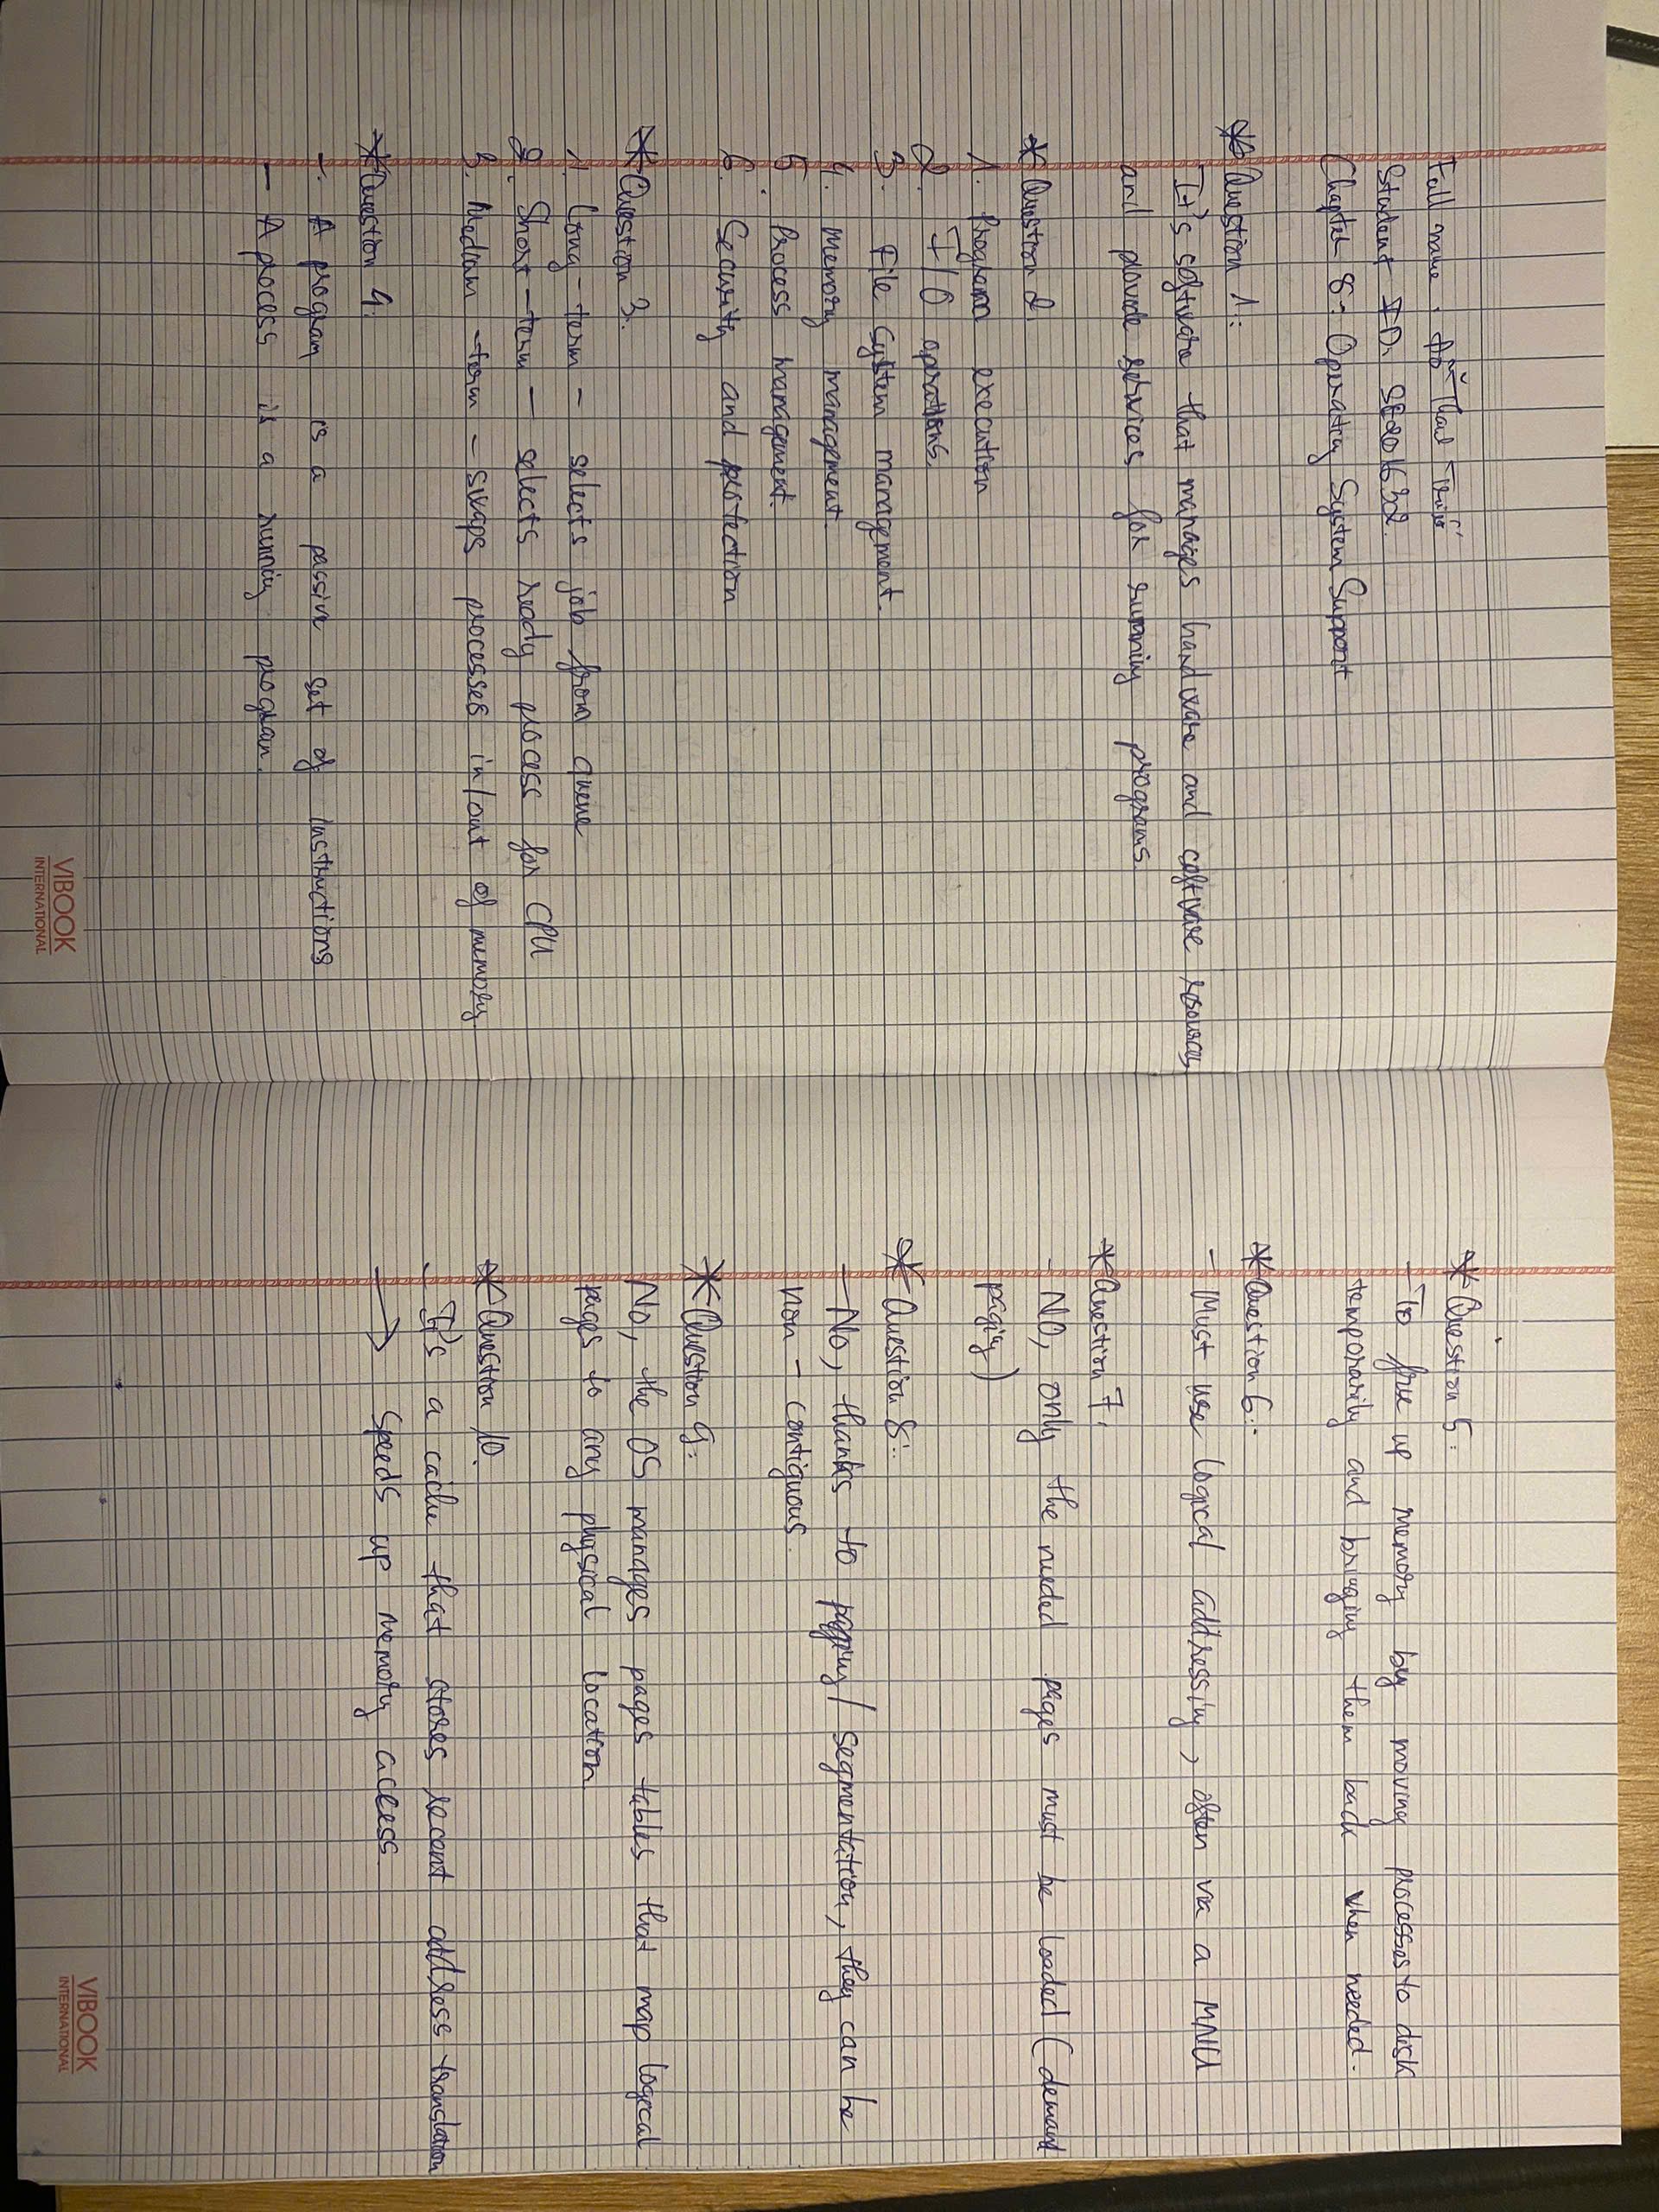 Full name: Đỗ Thái Trinh
Student ID: SE201632.
Chapter 8: Operating System Support
* Question 1:
It's software that manages hardware and software resources
and provide services for running programs.
* Question 2.
1. Program execution
2. I/O operations.
3. File system management.
4. Memory management.
5. Process management.
6. Security and protection
* Question 3:
1. Long-term - selects job from queue
2. Short-term - selects ready process for CPU
3. Medium-term - swaps processes in/out of memory.
* Question 4:
- A program is a passive set of instructions
- A process is a running program.
VIBOOK
INTERNATIONAL
* Question 5:
- To free up memory by moving processes to disk
temporarily and bringing them back when needed.
* Question 6:
- Must use logical addressing, often via a MMU
* Question 7:
- NO, only the needed pages must be loaded (demand
paging)
* Question 8:
- No, thanks to paging/segmentation, they can be
non-contiguous.
* Question 9:
No, the OS manages pages tables that map logical
pages to any physical location.
* Question 10.
- It's a cache that stores recent address translation
→ Speeds up memory access.
VIBOOK
INTERNATIONAL